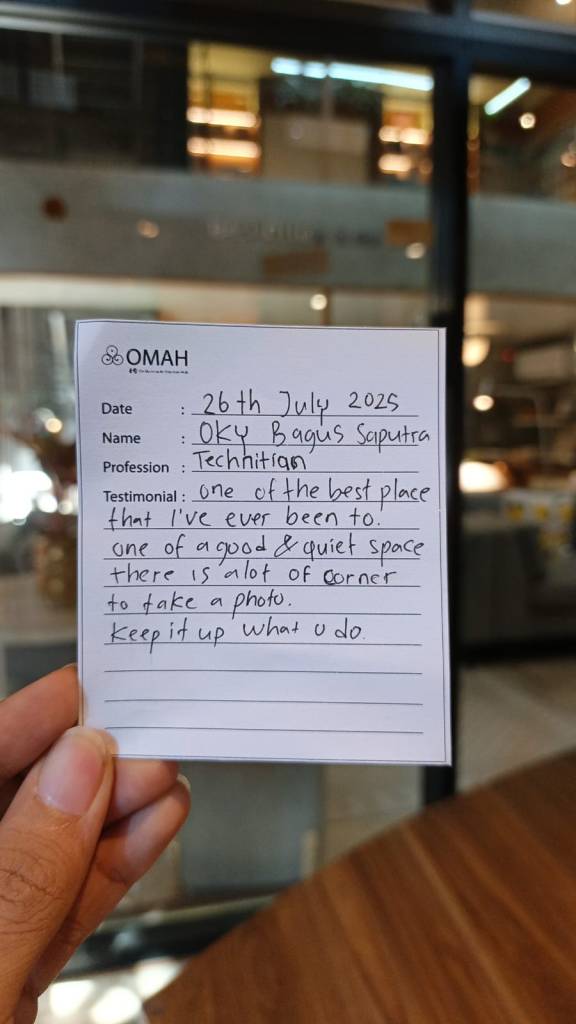 OMAH
Date : 26th July 2025
Name : OKY Bagus Saputra
Profession : Technitian
Testimonial : one of the best place
that I've ever been to.
one of a good & quiet space
there is alot of corner
to take a photo.
keep it up what u do.